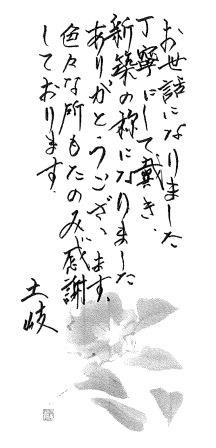 お世話になりました
丁寧にして戴き、
新築の様になりました
ありがとうございます、
色々な所もたのみ感謝
しております。
土岐